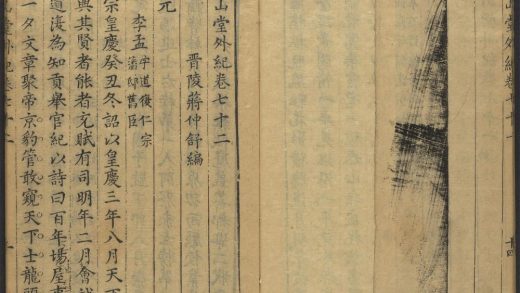 堂外紀卷七十一
十四
山堂外紀卷七十二
晋陵蔣仲舒編
元
李孟字道復仁宗
潛邸舊臣
宗皇慶癸丑冬詔以皇慶三年八月天下
興其賢者能者充賦有司明年二月會試
道復為知貢舉官紀以詩曰百年場屋事
一夕文章聚帝京豹管敢窺天下士龍頭
堂外紀卷七十二
一